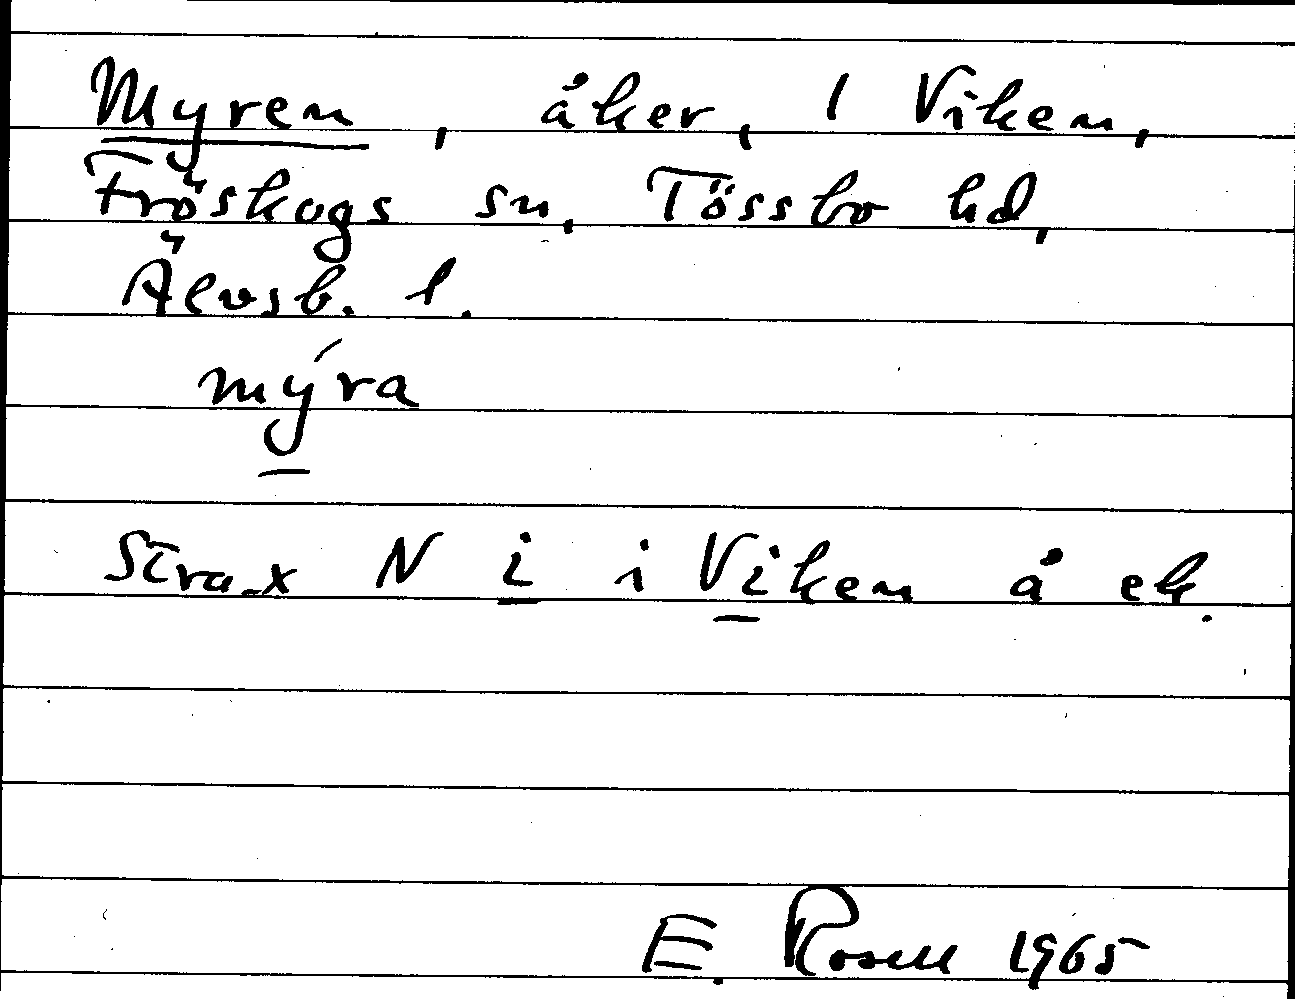 Myren, åker, 1 Viken,
Fröskogs sn, Tössbo hd,
Älvsb. l.
mýra
Strax N i i Viken å ek.
E. Rosell 1965